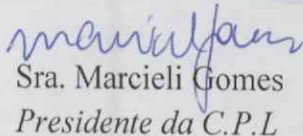 Sra. Marcieli Gomes
Presidente da C.P.L